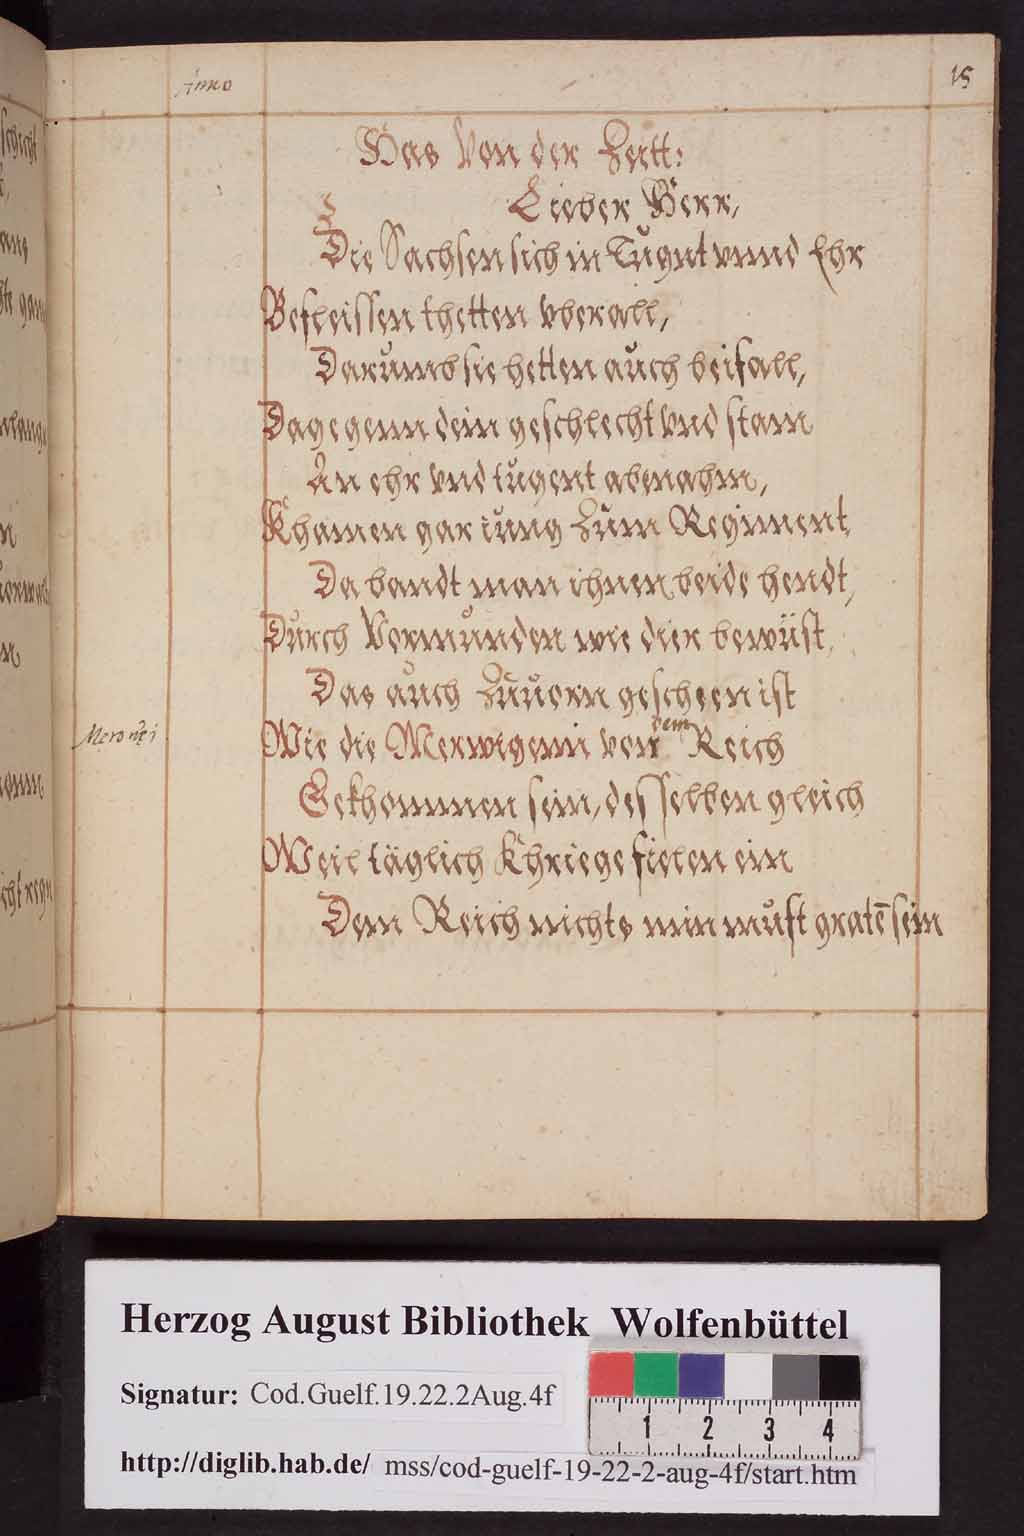 Anno
15
Has Von der Zeitt:
Lieber Herr,
Die Sachsen sich in Tugnt vnnd Ehr
Befleissen thetten vberall,
Darumb sie hetten auch beifall,
Dagegenn dein geschlecht vnd stam
An ehr vnd tugent abnahm,
Khamen gar iung Zum Regiment,
Da bandt man ihnen beide hendt,
Durch Vormunden wie dier bewüst,
Das auch Zuuorn gescheen ist
Wie die Merwigenn von dem Reich
Gekhommen sein, desselben gleich
Weil täglich Khriege fielen ein
Dem Reich nichts min must gratē sein
Herzog August Bibliothek Wolfenbüttel
Signatur: Cod.Guelf.19.22.2Aug.4f
1 2 3 4
http://diglib.hab.de/ mss/cod-guelf-19-22-2-aug-4f/start.htm